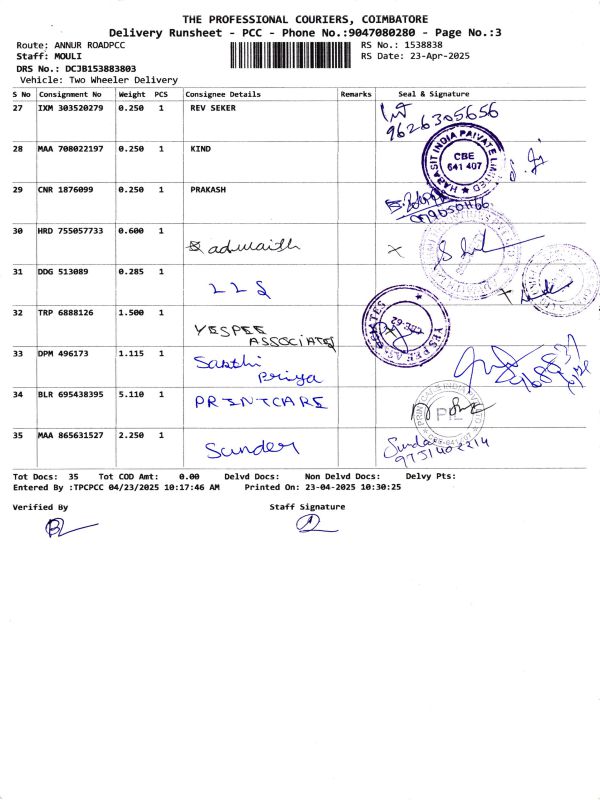 THE PROFESSIONAL COURIERS, COIMBATORE
Delivery Runsheet - PCC - Phone No.:9047080280 - Page No.:3
Route: ANNUR ROADPCC RS No.: 1538838
Staff: MOULI RS Date: 23-Apr-2025
DRS No.: DCJB153883803
Vehicle: Two Wheeler Delivery
S No Consignment No Weight PCS Consignee Details Remarks Seal & Signature
27 IXM 303520279 0.250 1 REV SEKER
9626305656
28 MAA 708022197 0.250 1 KIND
HARASIT INDIA PRIVATE LIMITED
CBE
641 407
29 CNR 1876099 0.250 1 PRAKASH
30 HRD 755057733 0.600 1 adwaith
31 DDG 513089 0.285 1 LLS
32 TRP 6888126 1.500 1 YESPEE ASSOCIATES
YESPEE ASSOCIATES
33 DPM 496173 1.115 1 Sakthi Priya
34 BLR 695438395 5.110 1 PRINTCARE
PIL
35 MAA 865631527 2.250 1 Sunder
Sunda
9751402214
Tot Docs: 35 Tot COD Amt: 0.00 Delvd Docs: Non Delvd Docs: Delvy Pts:
Entered By :TPCPCC 04/23/2025 10:17:46 AM Printed On: 23-04-2025 10:30:25
Verified By Staff Signature